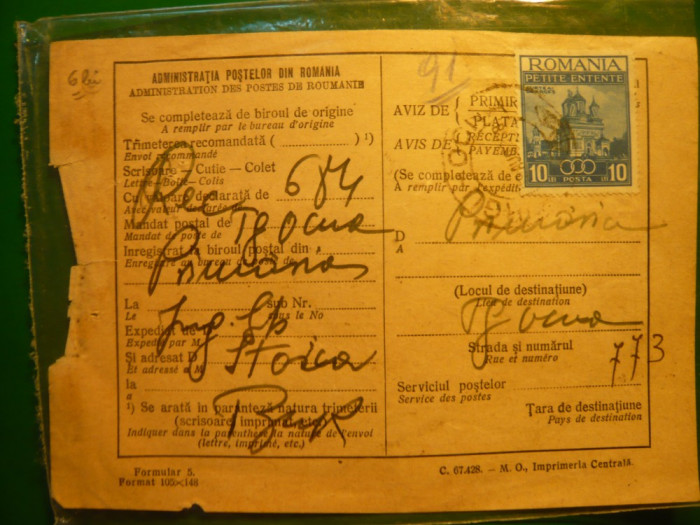 6 lei
91
ADMINISTRAȚIA POȘTELOR DIN ROMANIA
ADMINISTRATION DES POSTES DE ROUMANIE
Se completează de biroul de origine
A remplir par le bureau d'origine
Trimeterea recomandată ( ) ¹)
Envoi recommandé
Scrisoare - Cutie - Colet
Lettre - Boîte - Colis
Rec 684
Cu valoare declarată de
Avez valeur déclarée
Mandat poștal de
Mandat de poste de
Tg Ocna
Inregistrat la biroul poștal din
Enregistré au bureau de poste de
Primăria
La sub Nr.
Le sous le No
Ing. Sp
Expediat de
Expédié par M
Stoica
Și adresat D
Et adressé à M
la
a
Buc
¹) Se arată in paranteză natura trimeterii
(scrisoare, imprimate, etc.)
Indiquer dans la parenthèse la nature de l'envoi
(lettre, imprimé, etc.)
Formular 5.
Format 105×148
ROMANIA
PETITE ENTENTE
10 POSTA 10
AVIZ DE
PRIMIR
PLATA
AVIS DE
RECEPT
PAYEM
(Se completează de
A remplir par l'expédit
D Primăria
A
(Locul de destinațiune)
Lieu de destination
Tg Ocna
Strada și numărul
Rue et numéro
773
Serviciul poștelor
Service des postes
Țara de destinațiune
Pays de destination
C. 67.428. — M. O., Imprimeria Centrală.